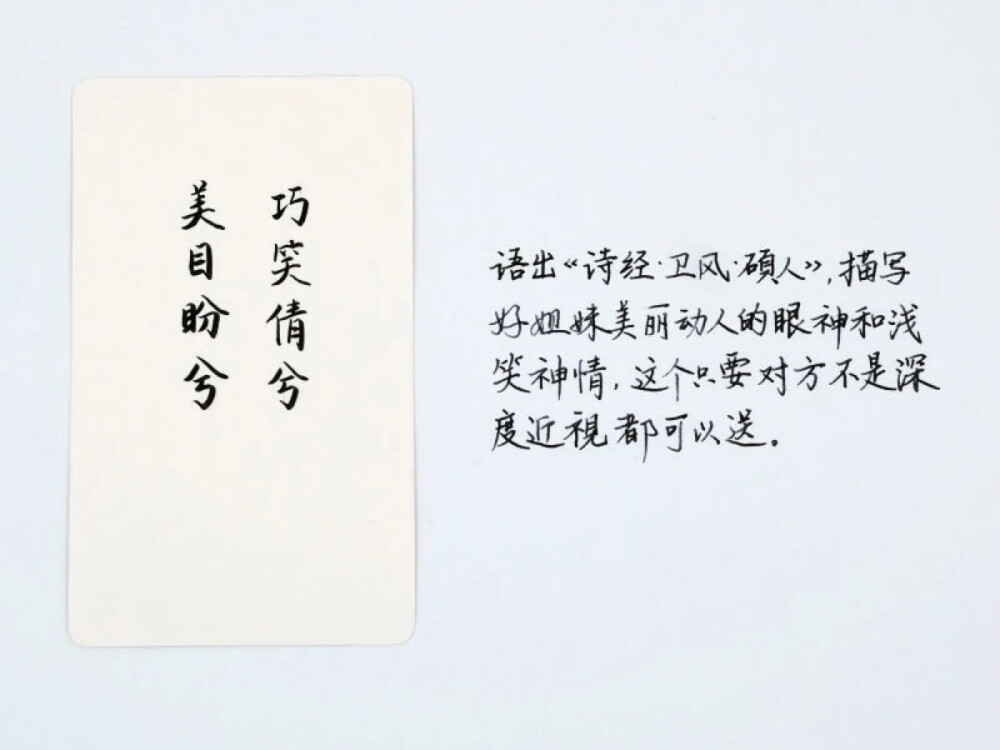 巧笑倩兮
美目盼兮
语出《诗经·卫风·碩人》,描写
好姐妹美丽动人的眼神和浅
笑神情,这个只要对方不是深
度近視都可以送。